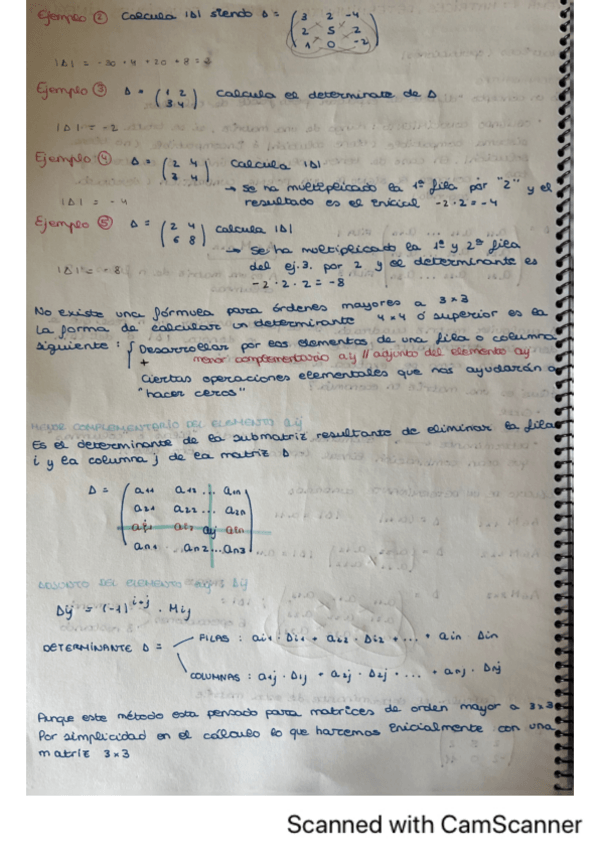 Ejemplo ② Calcula |A| siendo A = ( 3 2 -4
2 5 2
1 0 -2 )
|A| = -30 + 4 + 20 + 8 = 2
Ejemplo ③ A = ( 1 2
3 4 ) calcula el determinante de A
|A| = -2
Ejemplo ④ A = ( 2 4
3 4 ) calcula |A|
→ Se ha multiplicado la 1ª fila por "2" y el
resultado es el inicial -2·2 = -4
|A| = -4
Ejemplo ⑤ A = ( 2 4
6 8 ) calcula |A|
→ Se ha multiplicado la 1ª y 2ª fila
del ej.3. por 2 y el determinante es
-2·2·2 = -8
|A| = -8
No existe una fórmula para órdenes mayores a 3x3
La forma de calcular un determinante 4x4 o superior es la
siguiente: { Desarrollar por los elementos de una fila o columna
+ menor complementario aij // adjunto del elemento aij
Ciertas operaciones elementales que nos ayudarán a
"hacer ceros"
MENOR COMPLEMENTARIO DEL ELEMENTO aij
Es el determinante de la submatriz resultante de eliminar la fila
i y la columna j de la matriz A
A = ( a11 a12 ... a1n
a21 a22 ... a2n
aij
an1 ... an2 ... an3 )
ADJUNTO DEL ELEMENTO Aij
Aij = (-1)^i+j · Mij
DETERMINANTE A = FILAS : ai1 · Ai1 + ai2 · Ai2 + ... + ain Ain
COLUMNAS : a1j · A1j + a2j · A2j + ... + anj · Anj
Aunque este método esta pensado para matrices de orden mayor a 3x3
Por simplicidad en el cálculo lo que haremos inicialmente con una
matriz 3x3
Scanned with CamScanner